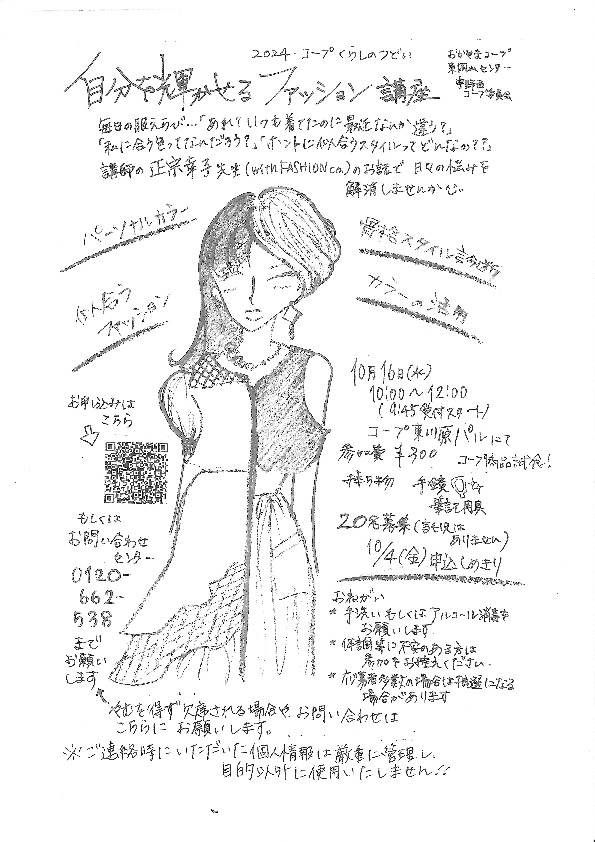 2024・コープくらしのつどい
おかやまコープ
東岡山センター
コープ委員会
自分を輝かせるファッション講座
毎日の服えらび…「あれ？いつも着てたのに最近なんか違う？」
「私に合う色ってなんだろう？」「ホントに似合うスタイルってどんなの？？」
講師の正宗幸子先生(with FASHION co.)のお話で日々の悩みを
解消しませんか。
パーソナルカラー
骨格スタイル診断
似合う
ファッション
カラーの活用
10月16日(水)
10:00〜12:00
(9:45受付スタート)
コープ東川原パルにて
参加費 ¥300
コープ商品試食！
持ち物 手鏡
筆記用具
20名募集(託児は
ありません)
10/4(金)申込しめきり
お申し込みは
こちら
もしくは
お問い合わせ
センター
0120-
662-
538
まで
お願い
します
おねがい
*手洗いもしくはアルコール消毒を
お願いします
*体調等に不安のある方は
参加をお控えください。
*応募者多数の場合は抽選になる
場合があります
やむを得ず欠席される場合や、お問い合わせは
こちらにお願いします。
※ご連絡時にいただいた個人情報は厳重に管理し、
目的以外に使用いたしません!!